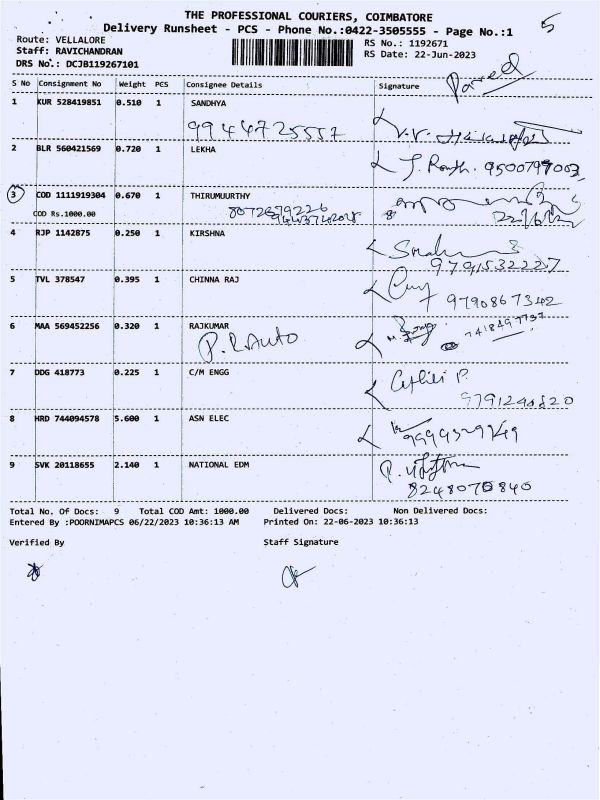 THE PROFESSIONAL COURIERS, COIMBATORE
5
Delivery Runsheet - PCS - Phone No.:0422-3505555 - Page No.:1
Route: VELLALORE
Staff: RAVICHANDRAN
DRS No.: DCJB119267101
RS No.: 1192671
RS Date: 22-Jun-2023
S No Consignment No Weight PCS Consignee Details Signature
1 KUR 528419851 0.510 1 SANDHYA
9944725557
2 BLR 560421569 0.720 1 LEKHA
9500797003
3 COD 1111919304 0.670 1 THIRUMUURTHY
COD Rs.1000.00
8072679226
4 RJP 1142875 0.250 1 KIRSHNA
9791532227
5 TVL 378547 0.395 1 CHINNA RAJ
9790867342
6 MAA 569452256 0.320 1 RAJKUMAR
P.R.Auto
7418497737
7 DDG 418773 0.225 1 C/M ENGG
8 HRD 744094578 5.600 1 ASN ELEC
9 SVK 20118655 2.140 1 NATIONAL EDM
8248070840
Total No. Of Docs: 9 Total COD Amt: 1000.00 Delivered Docs: Non Delivered Docs:
Entered By :POORNIMAPCS 06/22/2023 10:36:13 AM Printed On: 22-06-2023 10:36:13
Verified By Staff Signature